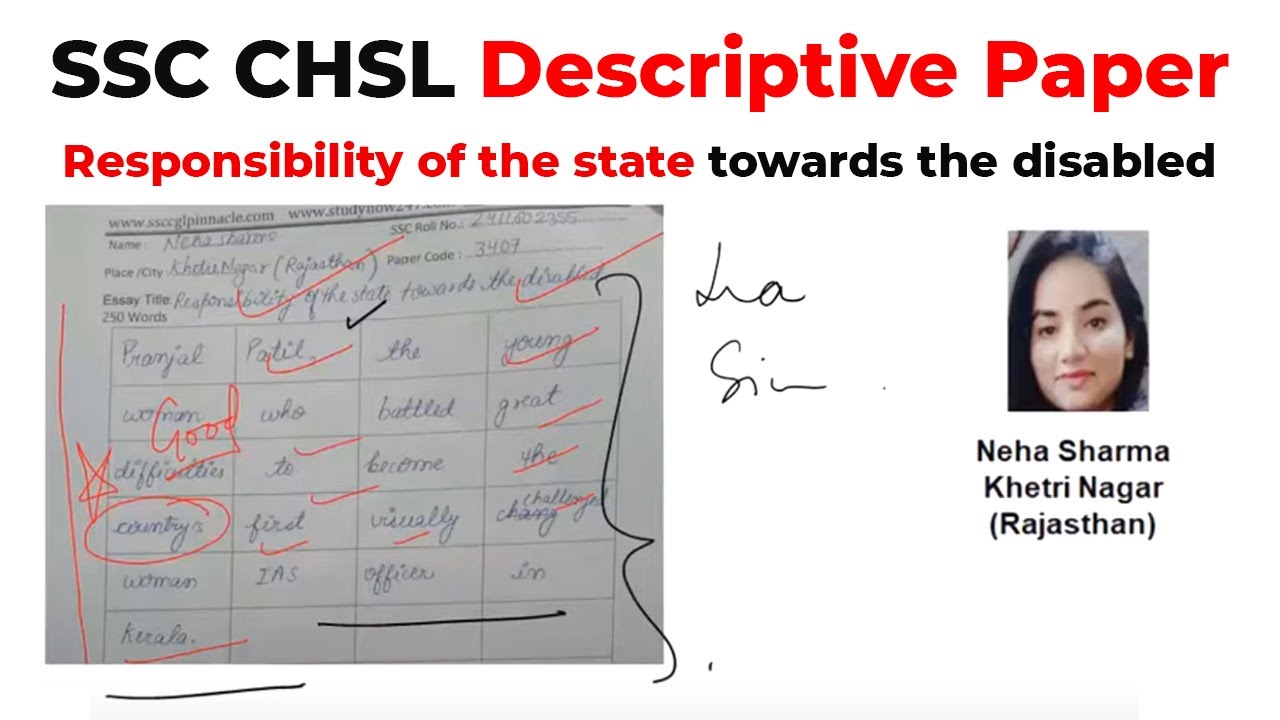 SSC CHSL Descriptive Paper
Responsibility of the state towards the disabled
www.ssccglpinnacle.com www.studynow247.
Name : Neha Sharma
SSC Roll No.: 2411602355
Place /City Khetri Nagar (Rajasthan) Paper Code : 3407
Essay Title: Responsibility of the state towards the disabled
250 Words
Pranjal Patil, the young
woman who battled great
Good
difficulties to become the
country's first visually challenged
woman IAS officer in
Kerala.
Ira
Neha Sharma
Khetri Nagar
(Rajasthan)